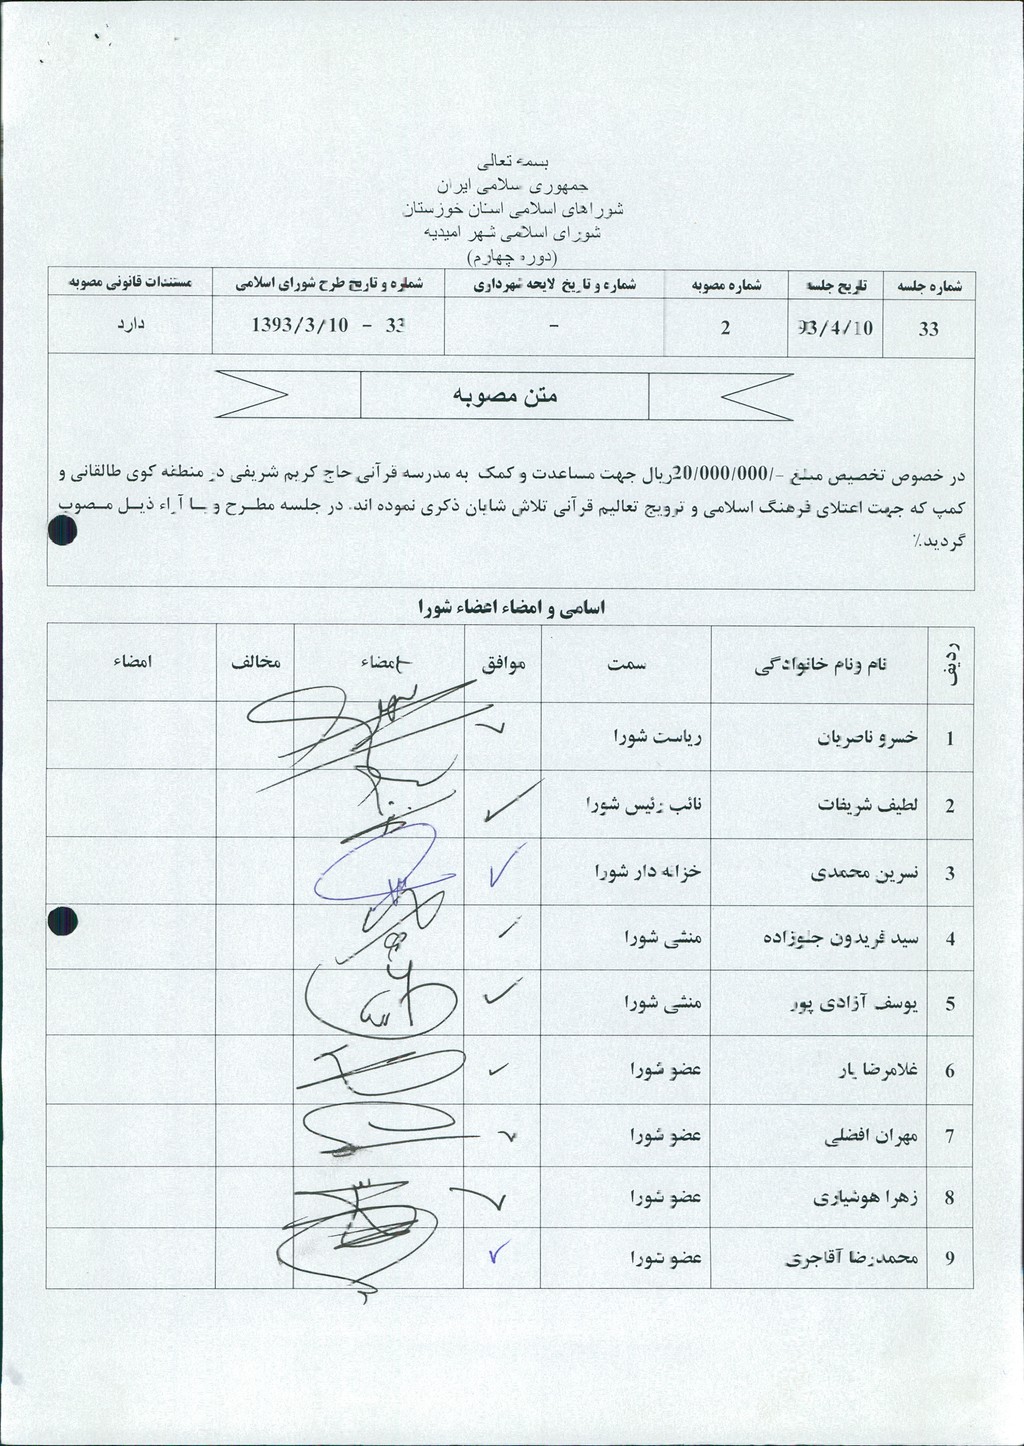 بسمه تعالی
جمهوری سلامی ایران
شوراهای اسلامی استان خوزستان
شورای اسلامی شهر امیدیه
(دوره چهارم)
شماره جلسه تاریخ جلسه شماره مصوبه شماره و تاریخ لایحه شهرداری شماره و تاریخ طرح شورای اسلامی مستندات قانونی مصوبه
33 93/4/10 2 - 33 - 1393/3/10 دارد
متن مصوبه
در خصوص تخصیص مبلغ -/20/000/000ریال جهت مساعدت و کمک به مدرسه قرآنی حاج کریم شریفی در منطقه کوی طالقانی و
کمپ که جهت اعتلای فرهنگ اسلامی و ترویج تعالیم قرآنی تلاش شایان ذکری نموده اند. در جلسه مطرح و با آراء ذیل مصوب
گردید.٪
اسامی و امضاء اعضاء شورا
ردیف نام ونام خانوادگی سمت موافق امضاء مخالف امضاء
1 خسرو ناصریان ریاست شورا
2 لطیف شریفات نائب رئیس شورا
3 نسرین محمدی خزانه دار شورا
4 سید فریدون جلوزاده منشی شورا
5 یوسف آزادی پور منشی شورا
6 غلامرضا یار عضو شورا
7 مهران افضلی عضو شورا
8 زهرا هوشیاری عضو شورا
9 محمدرضا آقاجری عضو شورا